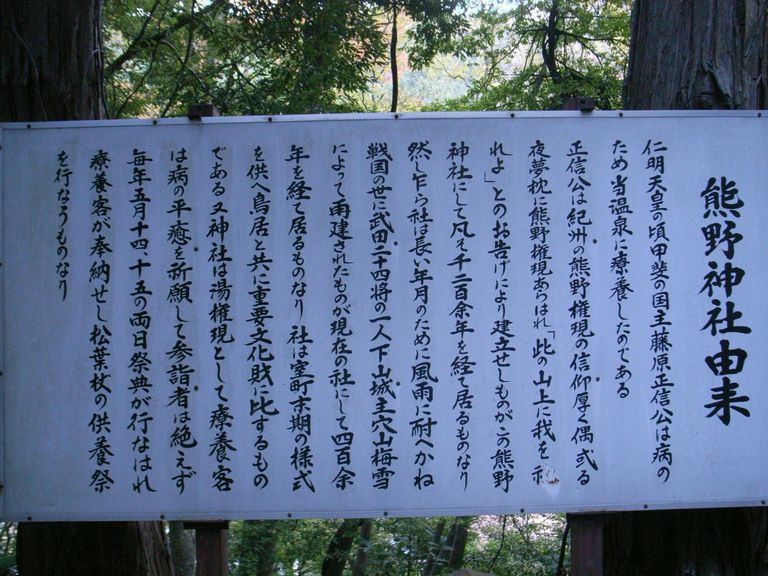 熊野神社由来
仁明天皇の頃甲斐の国主藤原正信公は病の
ため当温泉に療養したのである
正信公は紀州の熊野権現の信仰厚く偶或る
夜夢枕に熊野権現あらはれ「此の山上に我を祀
れよ」とのお告げにより建立せしものがこの熊野
神社にして凡そ千二百余年を経て居るものなり
然し乍ら社は長い年月のために風雨に耐へかね
戦国の世に武田二十四将の一人下山城主穴山梅雪
によって再建されたものが現在の社にして四百余
年を経て居るものなり 社は室町末期の様式
を供へ鳥居と共に重要文化財に比するもの
である又神社は湯権現として療養客
は病の平癒を祈願して参詣者は絶えず
毎年五月十四、十五の両日祭典が行なはれ
療養客が奉納せし松葉杖の供養祭
を行なうものなり